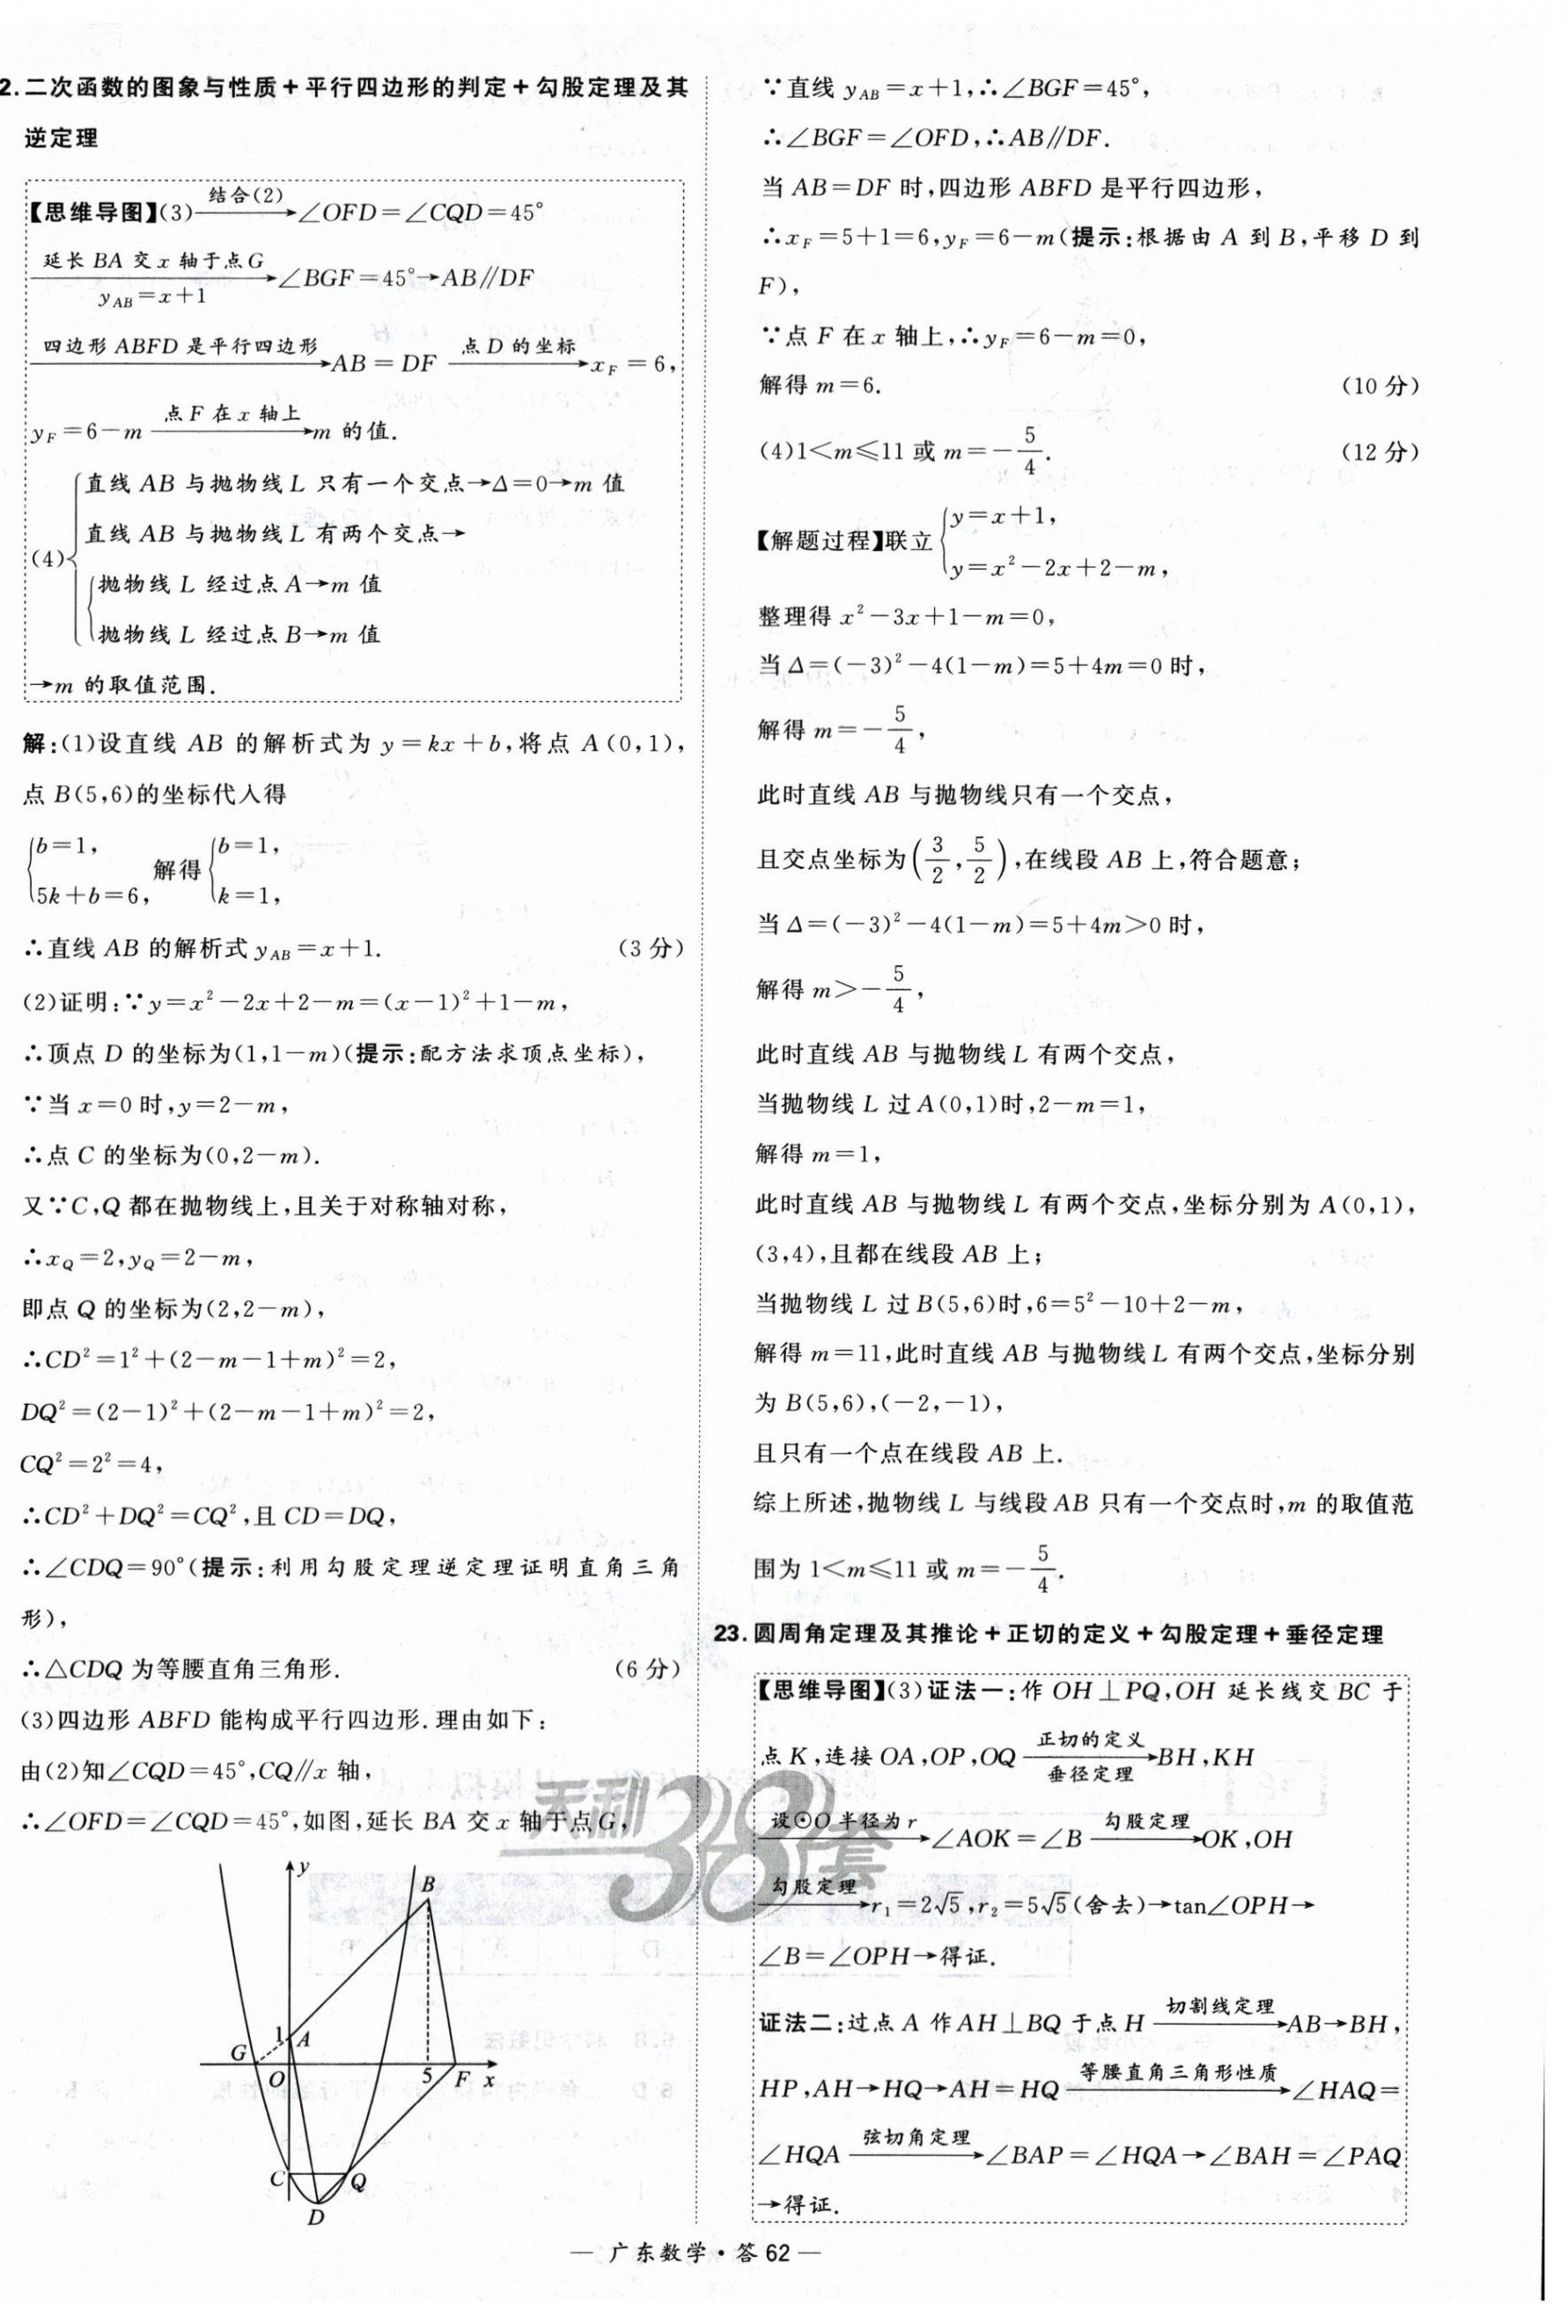 2.二次函数的图象与性质+平行四边形的判定+勾股定理及其
逆定理
【思维导图】(3)——结合(2)→∠OFD=∠CQD=45°
延长 BA 交 x 轴于点 G
y_AB=x+1
→∠BGF=45°→AB∥DF
四边形 ABFD 是平行四边形→AB=DF 点 D 的坐标→x_F=6,
y_F=6-m 点 F 在 x 轴上→m 的值.
(4)
直线 AB 与抛物线 L 只有一个交点→Δ=0→m 值
直线 AB 与抛物线 L 有两个交点→
抛物线 L 经过点 A→m 值
抛物线 L 经过点 B→m 值
→m 的取值范围.
解:(1)设直线 AB 的解析式为 y=kx+b,将点 A(0,1),
点 B(5,6)的坐标代入得
{b=1, 5k+b=6, 解得 {b=1, k=1,
∴直线 AB 的解析式 y_AB=x+1. (3 分)
(2)证明:∵y=x²-2x+2-m=(x-1)²+1-m,
∴顶点 D 的坐标为(1,1-m)(提示:配方法求顶点坐标),
∵当 x=0 时,y=2-m,
∴点 C 的坐标为(0,2-m).
又∵C,Q 都在抛物线上,且关于对称轴对称,
∴x_Q=2,y_Q=2-m,
即点 Q 的坐标为(2,2-m),
∴CD²=1²+(2-m-1+m)²=2,
DQ²=(2-1)²+(2-m-1+m)²=2,
CQ²=2²=4,
∴CD²+DQ²=CQ²,且 CD=DQ,
∴∠CDQ=90°(提示:利用勾股定理逆定理证明直角三角
形),
∴△CDQ 为等腰直角三角形. (6 分)
(3)四边形 ABFD 能构成平行四边形.理由如下:
由(2)知∠CQD=45°,CQ∥x 轴,
∴∠OFD=∠CQD=45°,如图,延长 BA 交 x 轴于点 G,
y
B
1
A
G
O
5
F
x
C
Q
D
∵直线 y_AB=x+1,∴∠BGF=45°,
∴∠BGF=∠OFD,∴AB∥DF.
当 AB=DF 时,四边形 ABFD 是平行四边形,
∴x_F=5+1=6,y_F=6-m(提示:根据由 A 到 B,平移 D 到
F),
∵点 F 在 x 轴上,∴y_F=6-m=0,
解得 m=6. (10 分)
(4)1<m≤11 或 m=-5/4. (12 分)
【解题过程】联立{y=x+1, y=x²-2x+2-m,
整理得 x²-3x+1-m=0,
当 Δ=(-3)²-4(1-m)=5+4m=0 时,
解得 m=-5/4,
此时直线 AB 与抛物线只有一个交点,
且交点坐标为(3/2,5/2),在线段 AB 上,符合题意;
当 Δ=(-3)²-4(1-m)=5+4m>0 时,
解得 m>-5/4,
此时直线 AB 与抛物线 L 有两个交点,
当抛物线 L 过 A(0,1)时,2-m=1,
解得 m=1,
此时直线 AB 与抛物线 L 有两个交点,坐标分别为 A(0,1),
(3,4),且都在线段 AB 上;
当抛物线 L 过 B(5,6)时,6=5²-10+2-m,
解得 m=11,此时直线 AB 与抛物线 L 有两个交点,坐标分别
为 B(5,6),(-2,-1),
且只有一个点在线段 AB 上.
综上所述,抛物线 L 与线段 AB 只有一个交点时,m 的取值范
围为 1<m≤11 或 m=-5/4.
23.圆周角定理及其推论+正切的定义+勾股定理+垂径定理
【思维导图】(3)证法一:作 OH⊥PQ,OH 延长线交 BC 于
点 K,连接 OA,OP,OQ 正切的定义 垂径定理→BH,KH
设⊙O 半径为 r→∠AOK=∠B 勾股定理→OK,OH
勾股定理→r₁=2√5,r₂=5√5(舍去)→tan∠OPH→
∠B=∠OPH→得证.
证法二:过点 A 作 AH⊥BQ 于点 H 切割线定理→AB→BH,
HP,AH→HQ→AH=HQ 等腰直角三角形性质→∠HAQ=
∠HQA 弦切角定理→∠BAP=∠HQA→∠BAH=∠PAQ
→得证.
天利38套
— 广东数学·答 62 —